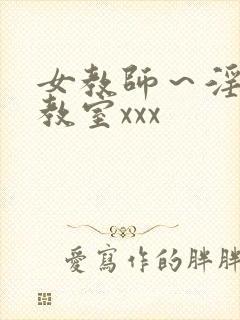 女教師～淫
教室xxx
愛寫作的胖胖